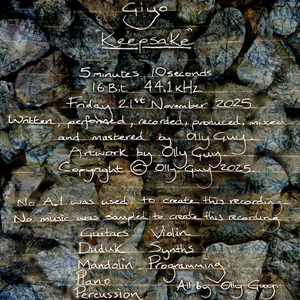 Giyo
Keepsake
5 minutes 10 seconds
16 Bit 44.1 kHz
Friday 21st November 2025
Written, performed, recorded, produced, mixed
and mastered by Olly Guy
Artwork by Olly Guy
Copyright © Olly Guy 2025
No A.I. was used to create this recording
No music was sampled to create this recording
Guitars Violin
Duduk Synths
Mandolin Programming
Piano
Percussion All by Olly Guy